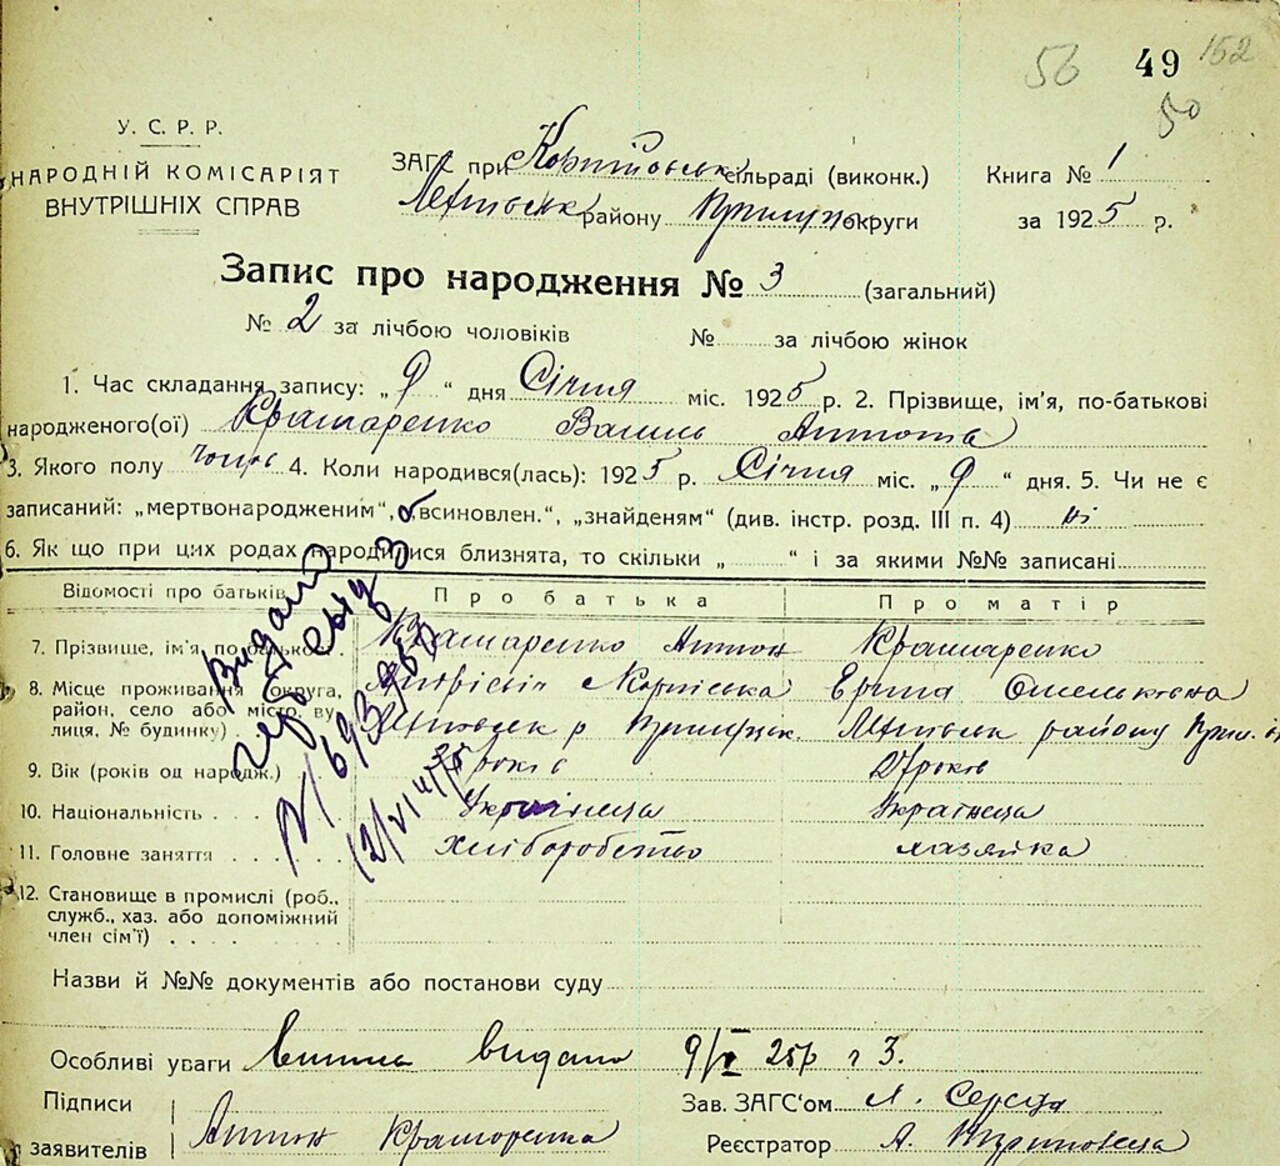 56 49 152
50
У. С. Р. Р.
НАРОДНІЙ КОМІСАРІЯТ
ВНУТРІШНІХ СПРАВ
ЗАГС при сільраді (виконк.) Книга № 1
району округи за 1925 р.
Запис про народження № 3 (загальний)
№ 2 за лічбою чоловіків № за лічбою жінок
1. Час складання запису: „9“ дня Січня міс. 1925 р. 2. Прізвище, ім’я, по-батькові
народженого(ої) Крамаренко Василь Антонів
3. Якого полу чолов 4. Коли народився(лась): 1925 р. Січня міс. „9“ дня. 5. Чи не є
записаний: „мертвонародженим“, „всиновлен.“, „знайденям“ (див. інстр. розд. III п. 4) ні
6. Як що при цих родах народилися близнята, то скільки „ “ і за якими №№ записані
Відомості про батьків Про батька Про матір
7. Прізвище, ім’я, по-батькові Крамаренко Антон Крамаренко
8. Місце проживання (округа, Ерина Омельковна
район, село або місто, ву-
лиця, № будинку) району
9. Вік (років од народж.) 35 років 27 років
10. Національність Українець Українка
11. Головне заняття хліборобство хазяйка
12. Становище в промислі (роб.,
служб., хаз. або допоміжний
член сім’ї)
Видано
Назви й №№ документів або постанови суду
Особливі уваги видано 9/I 25р ч 3.
Підписи Зав. ЗАГС‘ом
заявителів Антон Крамаренко Реєстратор А.